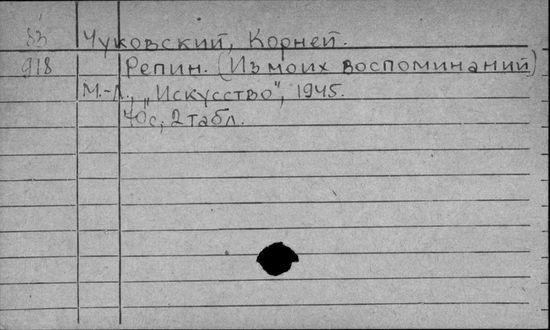 83 Чуковский, Корней.
918 Репин. (Из моих воспоминаний)
М.-Л., „Искусство", 1945.
70с, 2 табл.